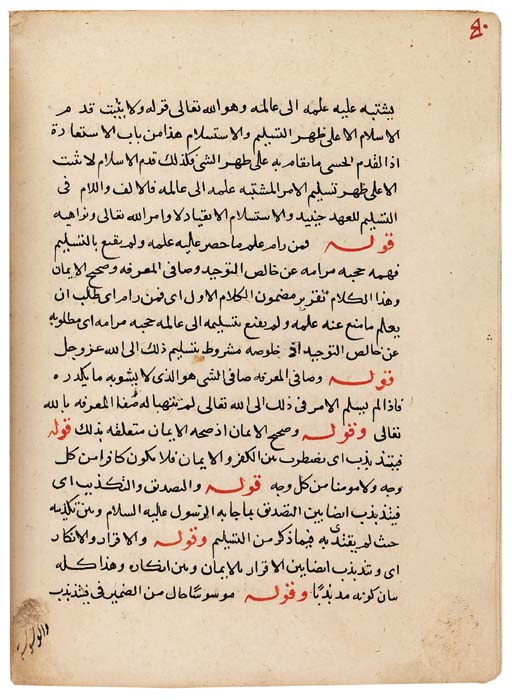 ٤٠
يشتبه عليه علمه الى عالمه وهو الله تعالى قوله ولا يثبت قدم
الاسلام الا على ظهر التسليم والاستسلام هذا من باب الاستعارة
اذا القدم الحسى مانقام به على ظهر الشى فكذلك قدم الاسلام لا تثبت
الا على ظهر تسليم الامر المشتبه علمه الى عالمه فالالف واللام فى
التسليم للعهد حينيد والاستسلام الانقياد لاوامر الله تعالى ونواهيه
قوله فمن رام علم ما حصر عليه علمه ولم يقنع بالتسليم
فهمه حجبه مرامه عن خالص التوحيد وصافى المعرفه وصحيح الايمان
وهذا الكلام تقرير مضمون الكلام الاول اى فمن رام اى طلب ان
يعلم ما منع عنه علمه ولم يقنع بتسليمه الى عالمه حجبه مرامه اى مطلوبه
عن خالص التوحيد اذ خلوصه مشروط بتسليم ذلك الى الله عز وجل
قوله وصافى المعرفه صافى الشى هو الذى لا يشوبه ما يكدره
فاذا لم يسلم الامر فى ذلك الى الله تعالى لم تتهيا له صفا المعرفه بالله
تعالى وقوله وصحيح الايمان اذ صحه الايمان متعلقه بذلك قوله
فيتذبذب اى يضطرب بين الكفر والايمان فلا يكون كافرا من كل
وجه ولا مومنا من كل وجه قوله والتصديق والتكذيب اى
فيتذبذب ايضا بين التصدق بما جا به الرسول عليه السلام وبين تكذيبه
حيث لم يقتد به فيما ذكر من التسليم وقوله والاقرار والانكار
اى و تذبذب ايضا بين الاقرار بالايمان وبين انكاره وهذا كله
بيان كونه مذبذبا وقوله موسوسا حال من الضمير فى فيتذبذب